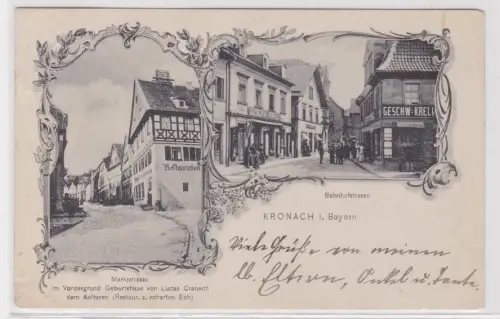 Restauration
GESCHW. KREL
Bahnhofstrasse
KRONACH i. Bayern
Marktstrasse
im Vordergrund Geburtshaus von Lucas Cranach
dem Aelteren (Restaur. z. scharfen Eck)
Viele Grüße von meinen
lb. Eltern, Onkel u. Tante.